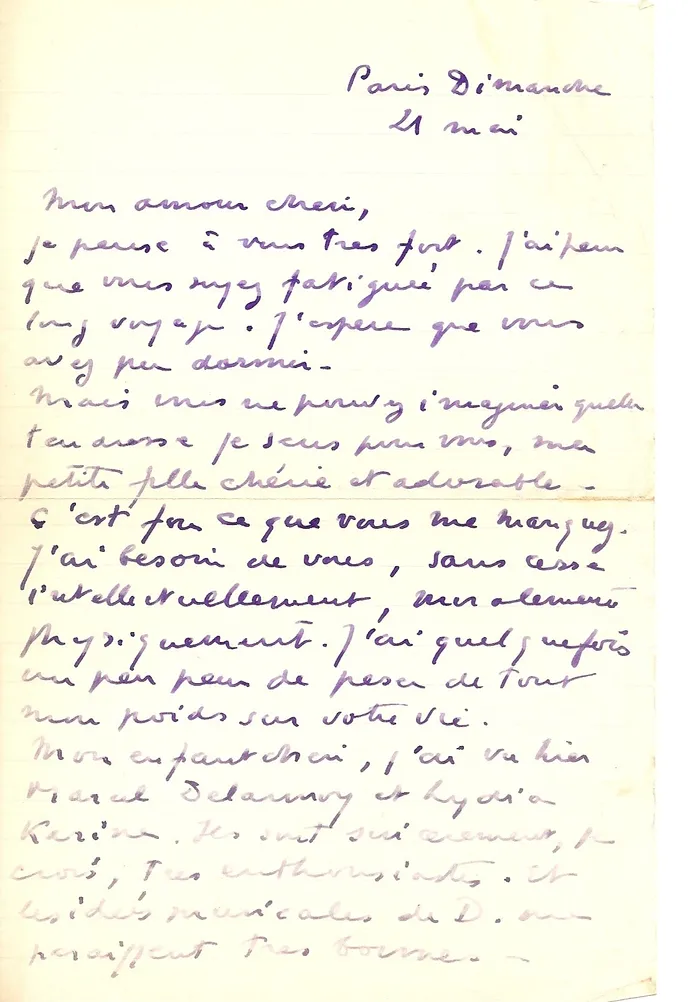 Paris Dimanche
21 mai
Mon amour cheri,
je pense à vous tres fort. J'ai peur
que vous soyez fatiguée par ce
long voyage. J'espere que vous
avez pu dormir -
Mais vous ne pouvez imaginer quelle
tendresse je sens pour vous, ma
petite fille chérie et adorable -
C'est fou ce que vous me manquez.
J'ai besoin de vous, sans cesse
intellectuellement, moralement
physiquement. J'ai quelquefois
un peu peur de peser de tout
mon poids sur votre vie.
Mon enfant cheri, j'ai vu hier
Marcel Delannoy et Lydia
Kerine. Ils sont sincerement, je
crois, tres enthousiastes. Et
les idées musicales de D. me
paraissent tres bonnes. -